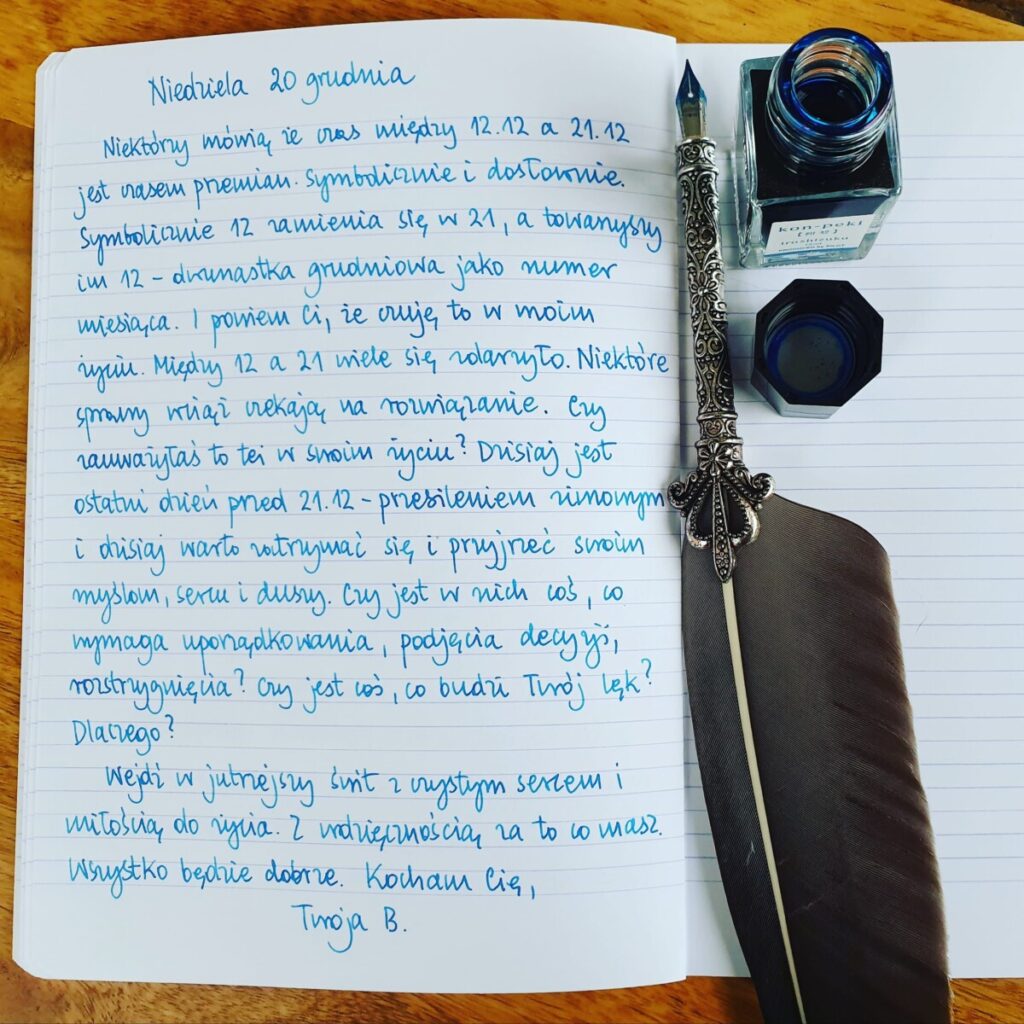 Niedziela 20 grudnia
Niektórzy mówią że czas między 12.12 a 21.12
jest czasem przemian. Symbolicznie i dosłownie.
Symbolicznie 12 zamienia się w 21, a towarzyszy
im 12 – dwunastka grudniowa jako numer
miesiąca. I powiem Ci, że czuję to w moim
życiu. Między 12 a 21 wiele się zdarzyło. Niektóre
sprawy wciąż czekają na rozwiązanie. Czy
zauważyłaś to też w swoim życiu? Dzisiaj jest
ostatni dzień przed 21.12 – przesileniem zimowym
i dzisiaj warto zatrzymać się i przyjrzeć swoim
myślom, sercu i duszy. Czy jest w nich coś, co
wymaga uporządkowania, podjęcia decyzji,
rozstrzygnięcia? Czy jest coś, co budzi Twój lęk?
Dlaczego?
Wejdź w jutrzejszy świt z czystym sercem i
miłością do życia. Z wdzięcznością za to co masz.
Wszystko będzie dobrze. Kocham Cię,
Twoja B.
kon-peki
[紺碧]
iroshizuku